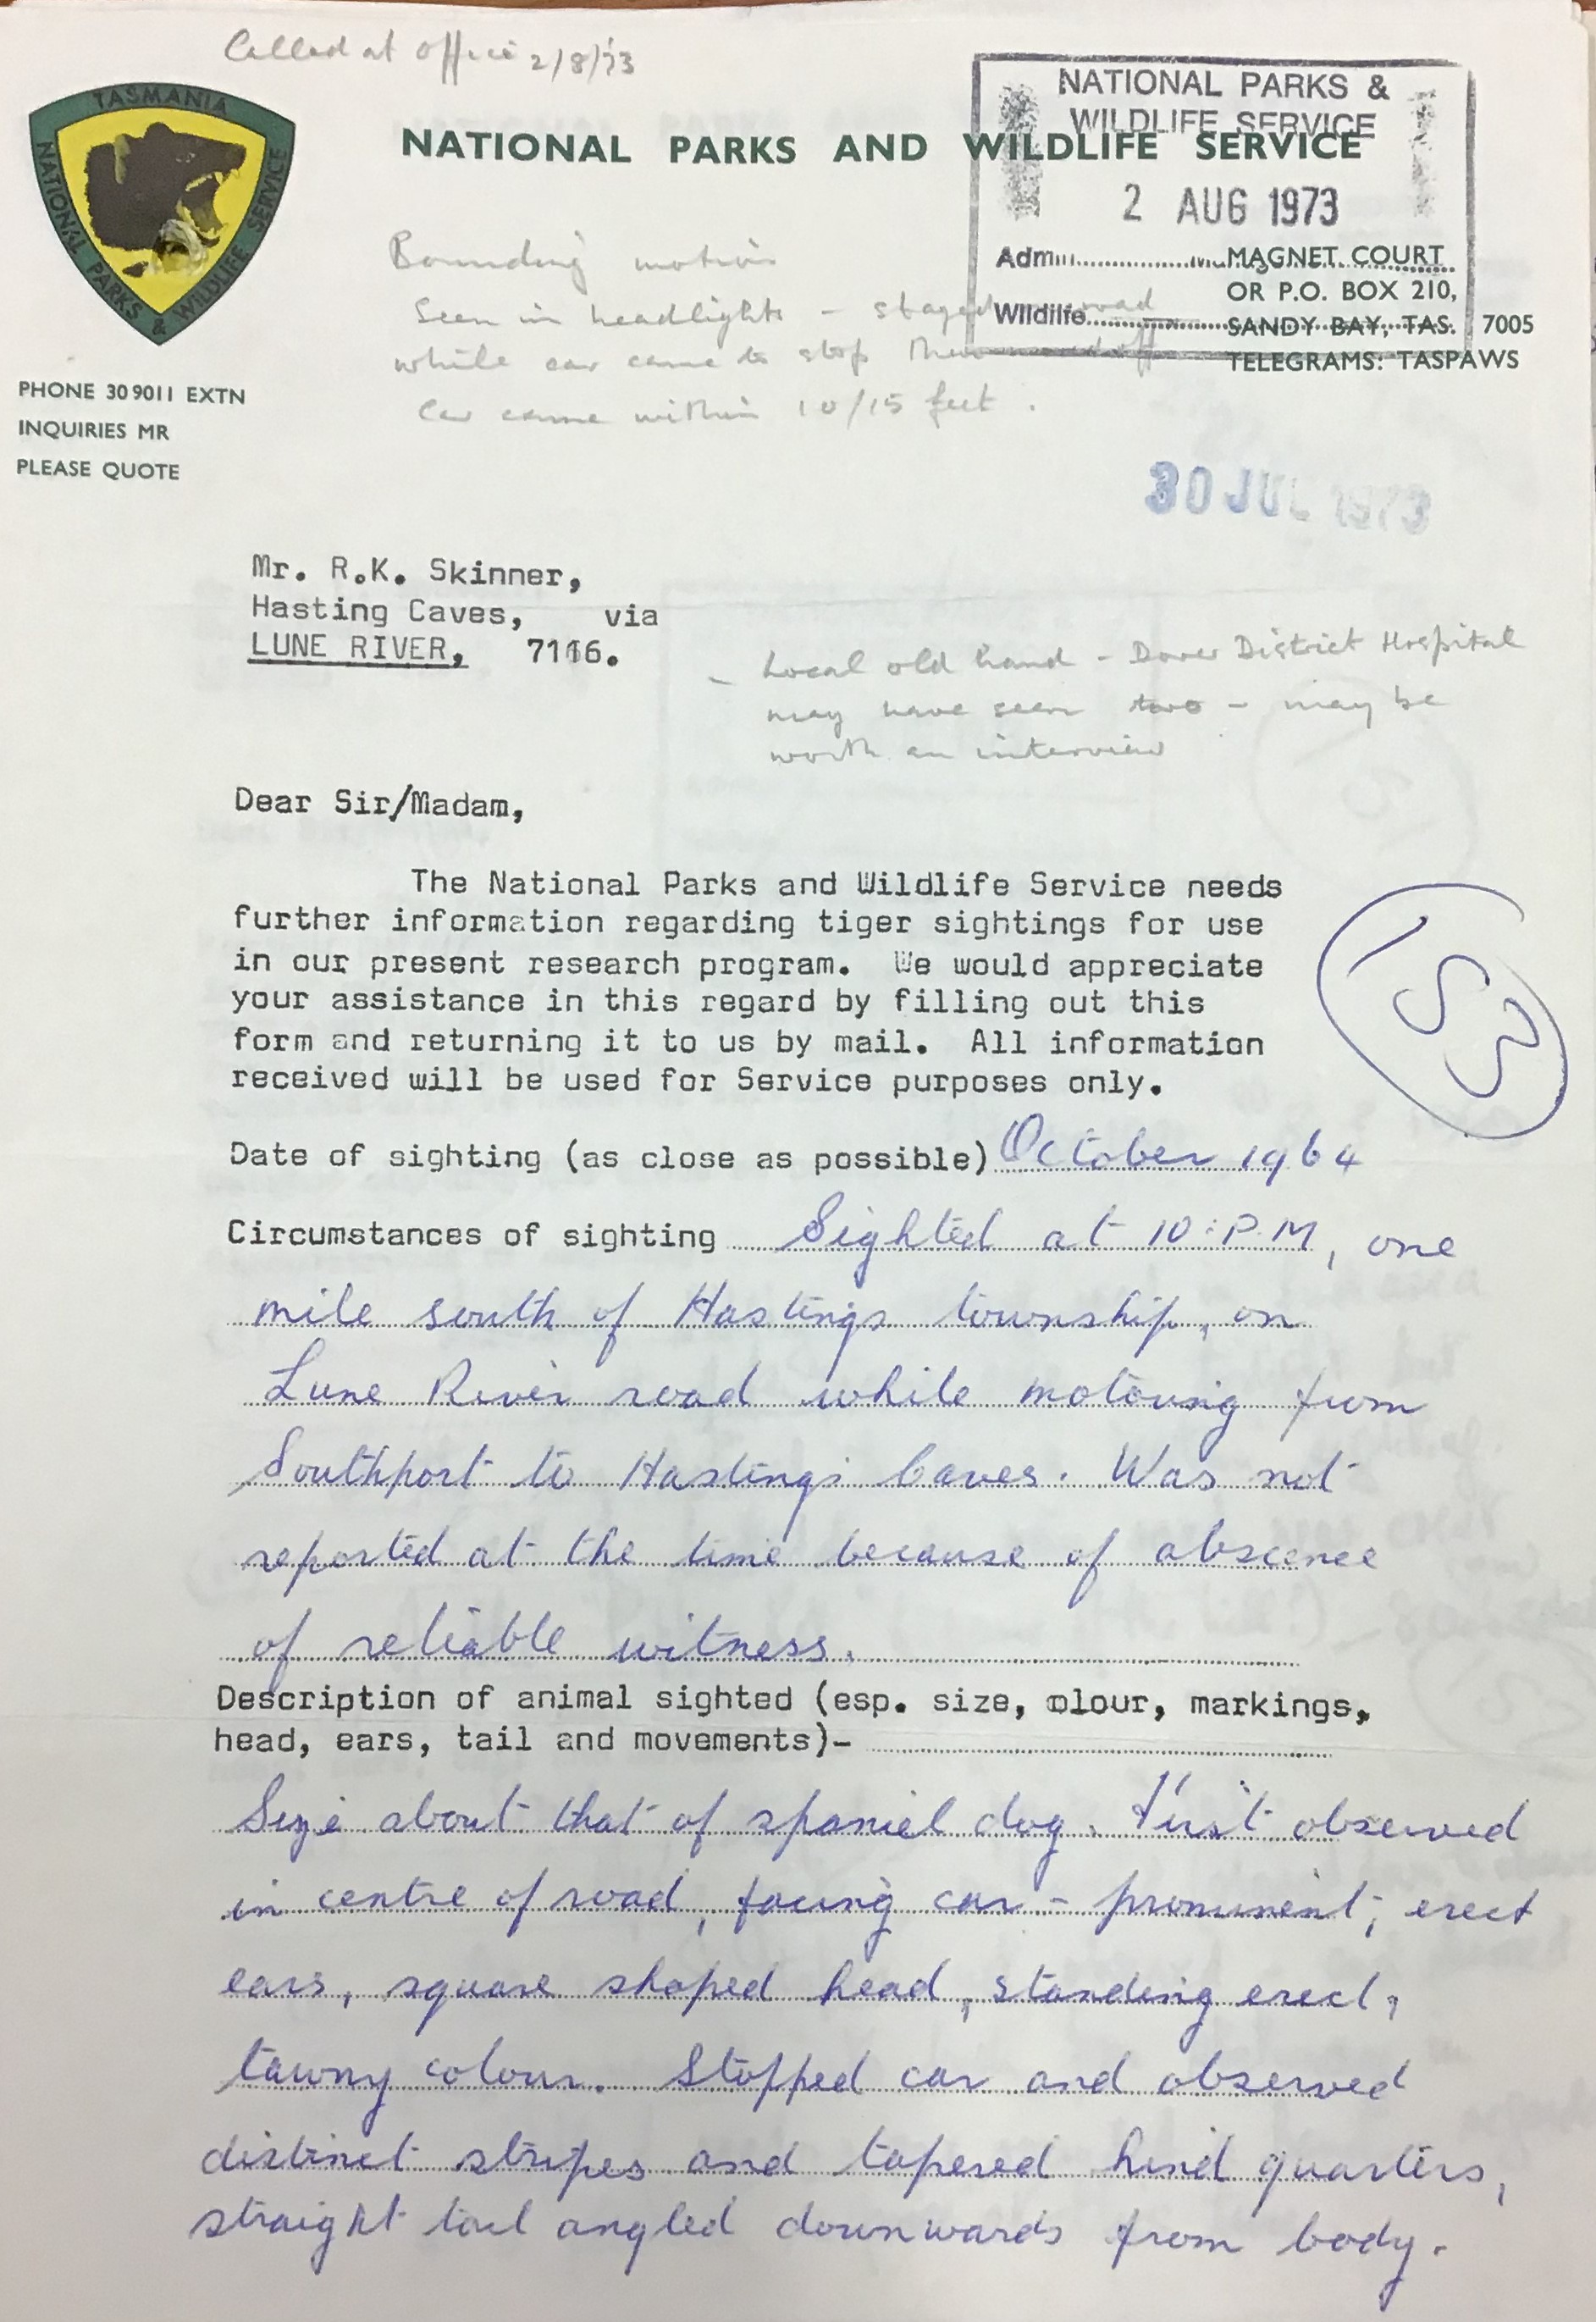 Called at office 2/8/73
TASMANIA
NATIONAL PARKS & WILDLIFE SERVICE
NATIONAL PARKS &
WILDLIFE SERVICE
2 AUG 1973
Admin
Wildlife
NATIONAL PARKS AND WILDLIFE SERVICE
MAGNET COURT
OR P.O. BOX 210,
SANDY BAY, TAS. 7005
TELEGRAMS: TASPAWS
Bounding motion
Seen in headlights - stayed on road
while car came to stop then moved off
Car came within 10/15 feet.
PHONE 30 9011 EXTN
INQUIRIES MR
PLEASE QUOTE
30 JUL 1973
Mr. R.K. Skinner,
Hasting Caves, via
LUNE RIVER, 7116.
- Local old hand - Dover District Hospital
may have seen two - may be
worth an interview
Dear Sir/Madam,
The National Parks and Wildlife Service needs
further information regarding tiger sightings for use
in our present research program. We would appreciate
your assistance in this regard by filling out this
form and returning it to us by mail. All information
received will be used for Service purposes only.
153
Date of sighting (as close as possible) October 1964
Circumstances of sighting Sighted at 10:P.M, one
mile south of Hastings township, on
Lune River road while motoring from
Southport to Hastings Caves. Was not
reported at the time because of abscence
of reliable witness.
Description of animal sighted (esp. size, olour, markings,
head, ears, tail and movements)-
Size about that of spaniel dog. First observed
in centre of road, facing car - prominent, erect
ears, square shaped head, standing erect,
tawny colour. Stopped car and observed
distinct stripes and tapered hind quarters,
straight tail angled downwards from body.